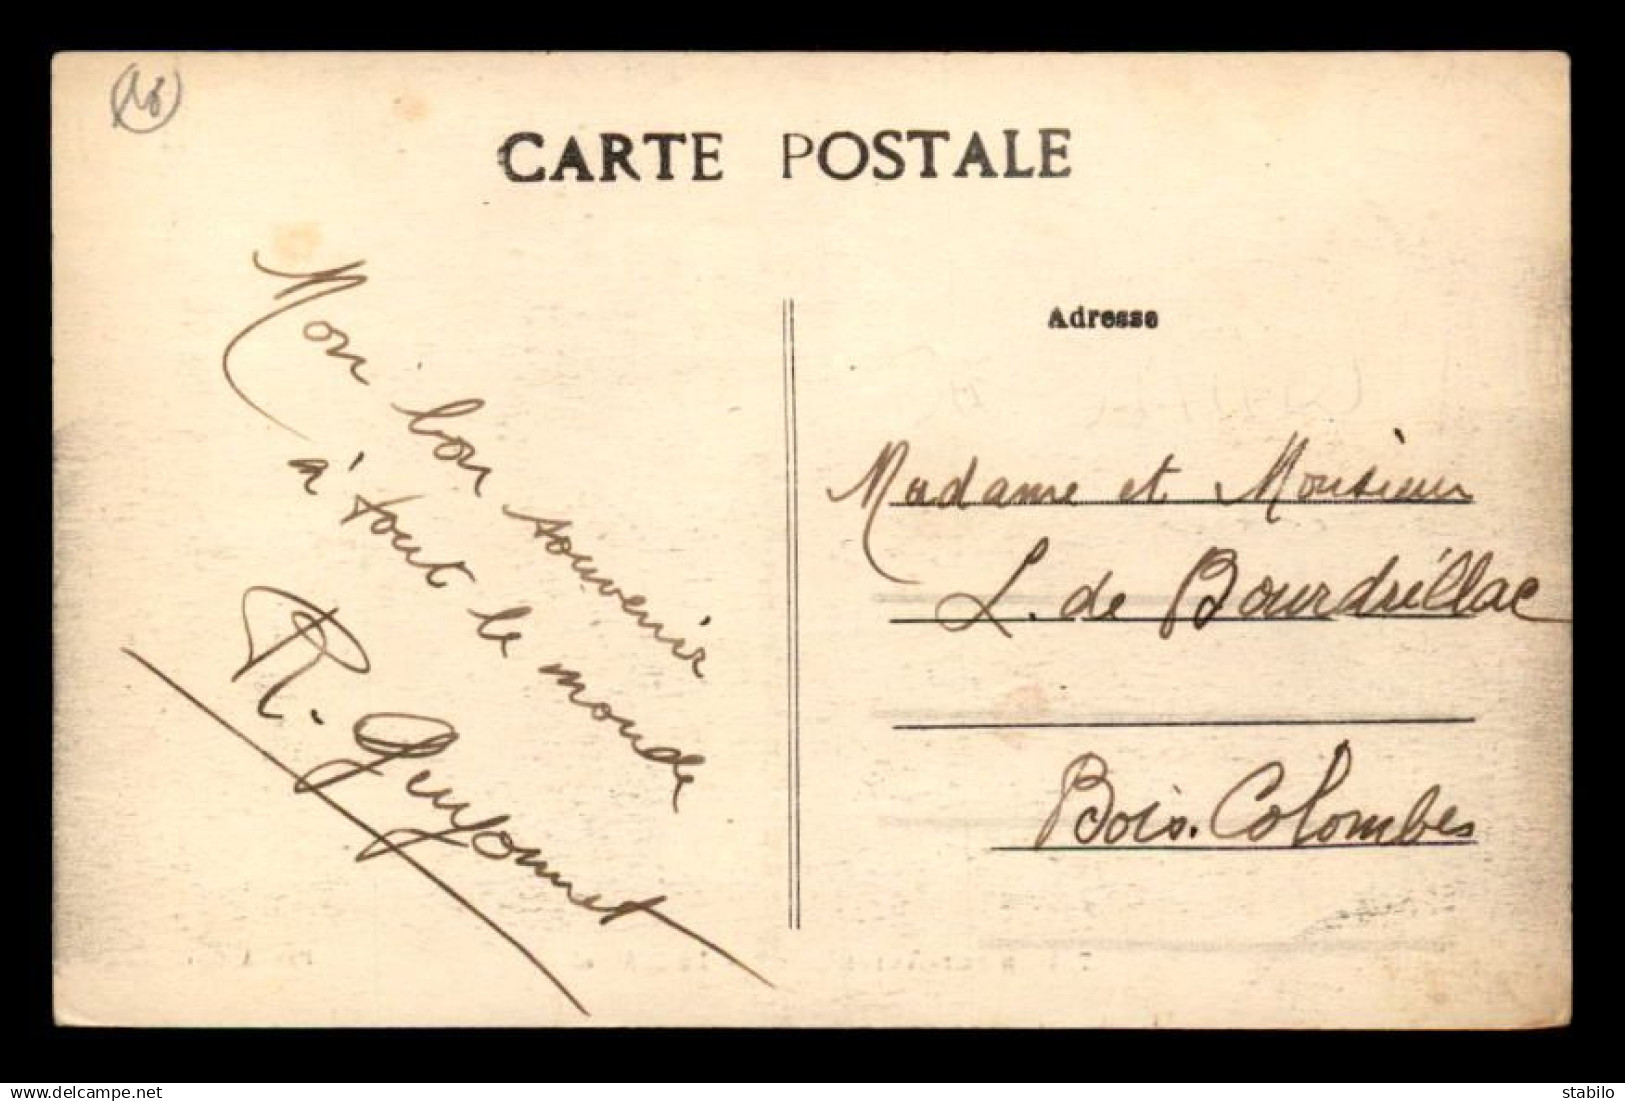 18
CARTE POSTALE
Mon bon souvenir
à tout le monde
R. Guyonnet
Adresse
Madame et Monsieur
L. de Bourdéillac
Bois. Colombes
www.delcampe.net
stabilo